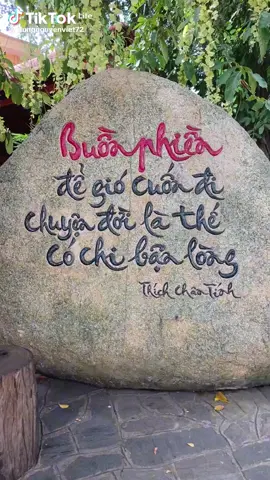 TikTok
Buồn phiền
để gió cuốn đi
chuyện đời là thế
có chi bận lòng
Thích Chân Tính